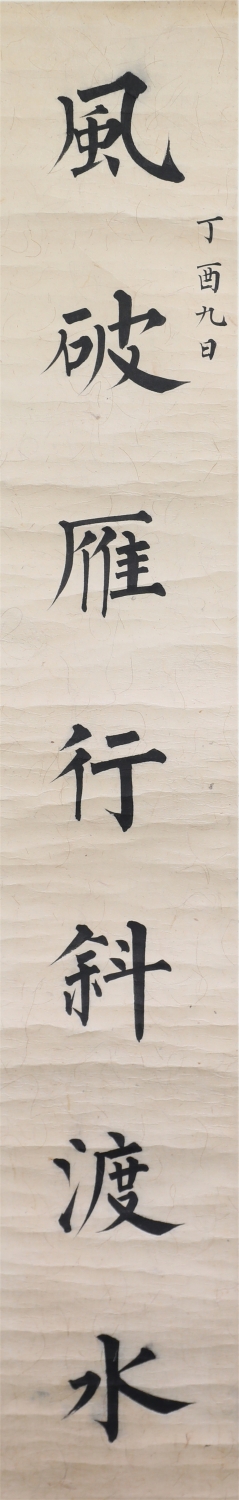 丁酉九日
風破雁行斜渡水